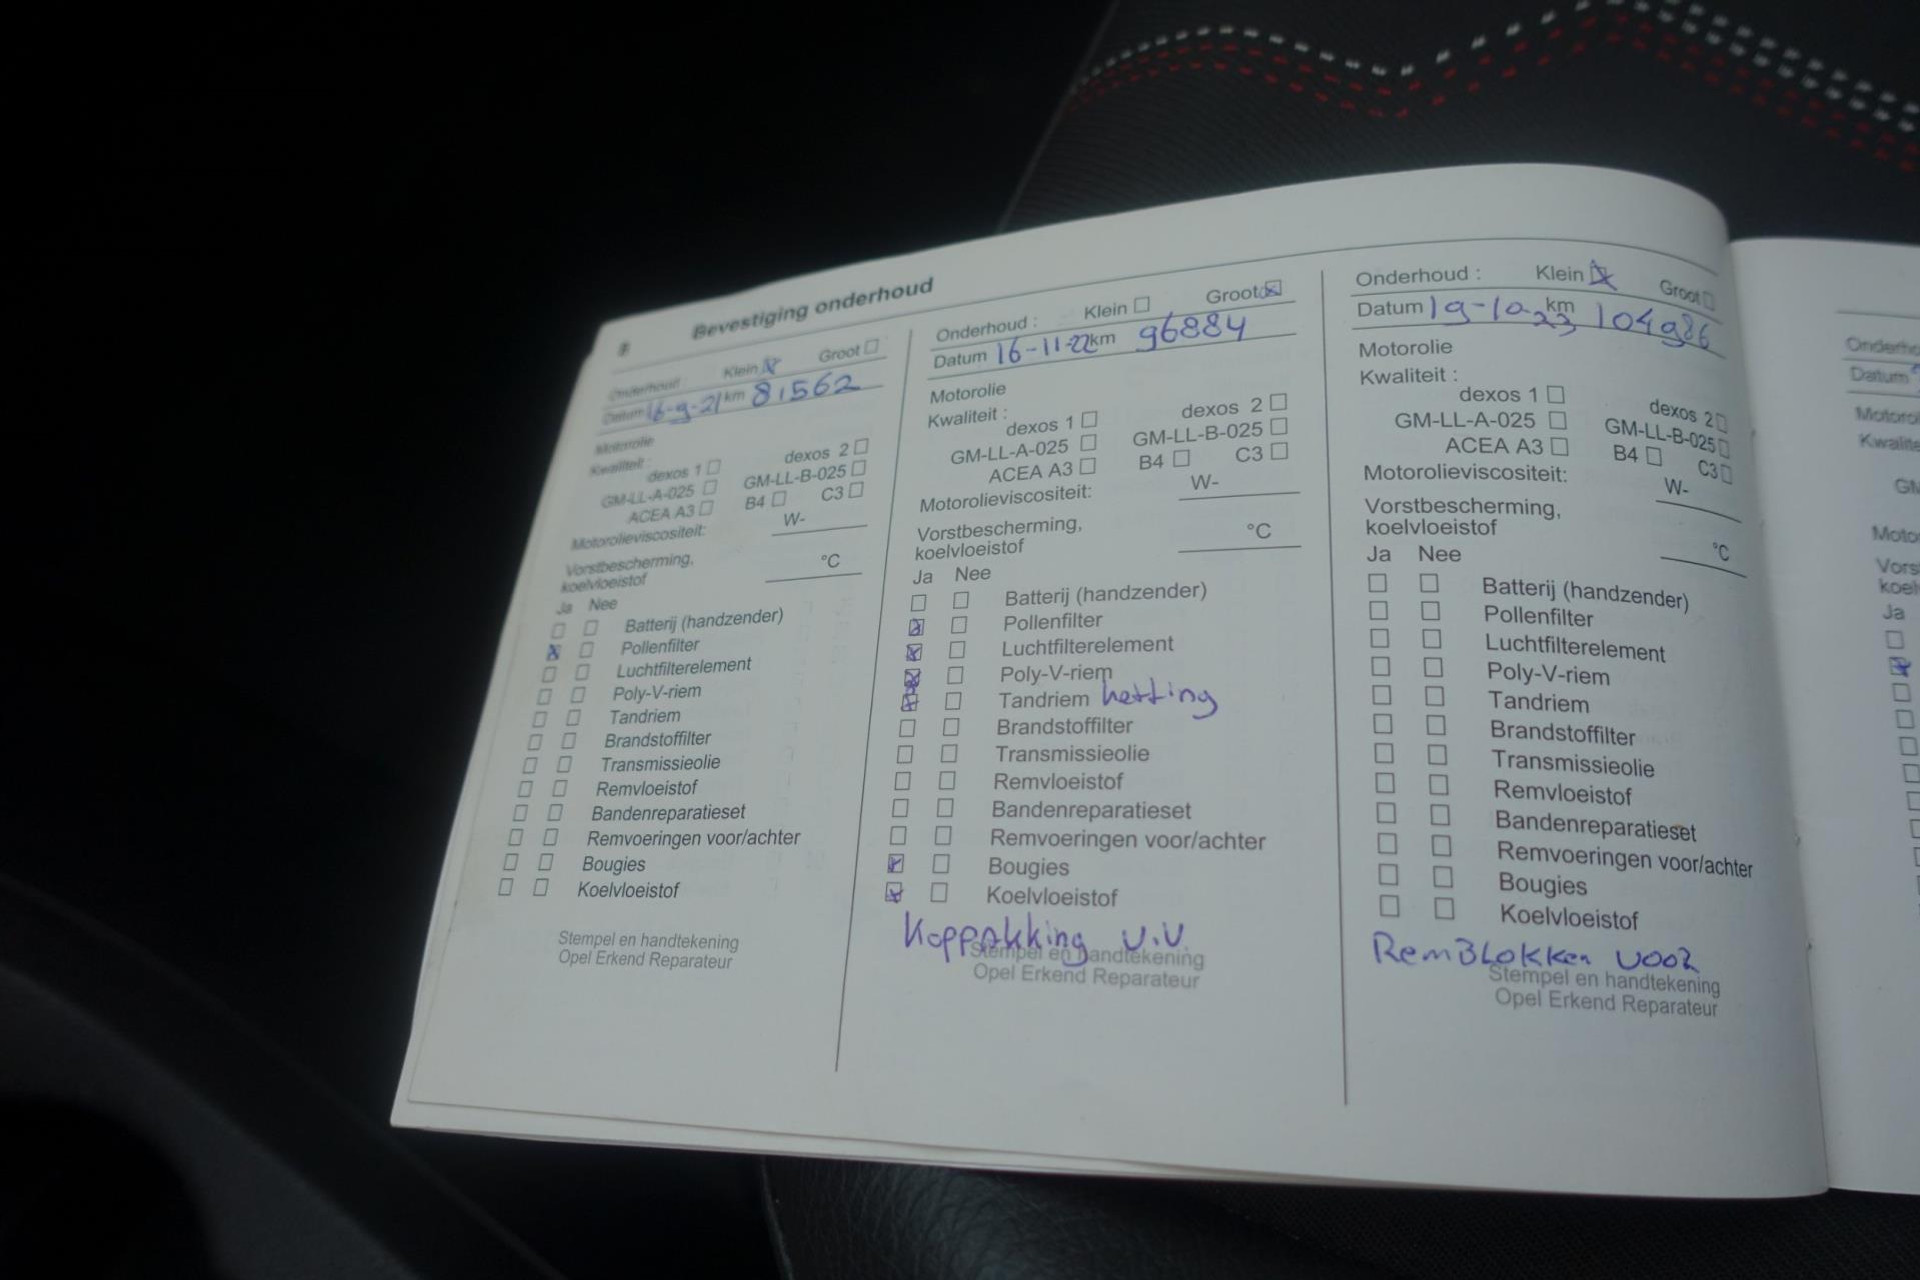 8 Bevestiging onderhoud
Onderhoud: Klein Groot
Datum 16-9-21 km 81562
Motorolie
Kwaliteit:
dexos 1 dexos 2
GM-LL-A-025 GM-LL-B-025
ACEA A3 B4 C3
Motorolieviscositeit: W-
Vorstbescherming,
koelvloeistof °C
Ja Nee
Batterij (handzender)
Pollenfilter
Luchtfilterelement
Poly-V-riem
Tandriem
Brandstoffilter
Transmissieolie
Remvloeistof
Bandenreparatieset
Remvoeringen voor/achter
Bougies
Koelvloeistof
Stempel en handtekening
Opel Erkend Reparateur
Onderhoud : Klein Groot
Datum 16-11-22 km 96884
Motorolie
Kwaliteit :
dexos 1 dexos 2
GM-LL-A-025 GM-LL-B-025
ACEA A3 B4 C3
Motorolieviscositeit: W-
Vorstbescherming,
koelvloeistof °C
Ja Nee
Batterij (handzender)
Pollenfilter
Luchtfilterelement
Poly-V-riem
Tandriem ketting
Brandstoffilter
Transmissieolie
Remvloeistof
Bandenreparatieset
Remvoeringen voor/achter
Bougies
Koelvloeistof
Koppakking V.V
Stempel en handtekening
Opel Erkend Reparateur
Onderhoud : Klein Groot
Datum 19-10-23 km 104986
Motorolie
Kwaliteit :
dexos 1 dexos 2
GM-LL-A-025 GM-LL-B-025
ACEA A3 B4 C3
Motorolieviscositeit: W-
Vorstbescherming,
koelvloeistof °C
Ja Nee
Batterij (handzender)
Pollenfilter
Luchtfilterelement
Poly-V-riem
Tandriem
Brandstoffilter
Transmissieolie
Remvloeistof
Bandenreparatieset
Remvoeringen voor/achter
Bougies
Koelvloeistof
RemBLokken voor
Stempel en handtekening
Opel Erkend Reparateur
Datum
Ja